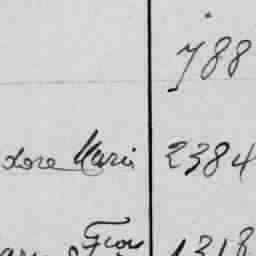 788
dore Marie 2384
Frou 1318